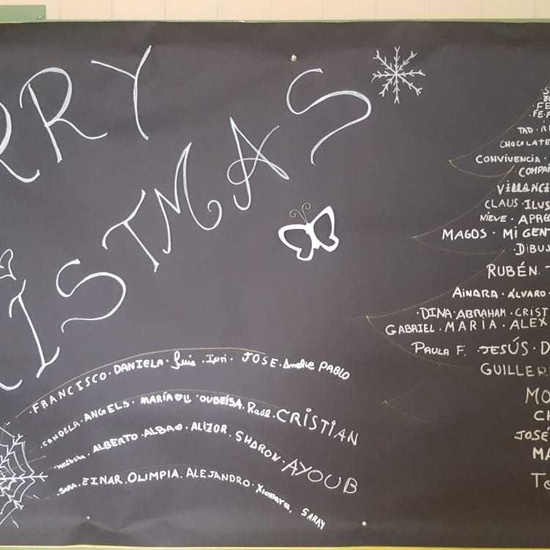 RRY
ISTMAS
FRANCISCO · DANIELA · Luis · Ipri · JOSE · Amelie PABLO
CANDELA · ANGELS · MARÍA · OUBEÏSA · Raúl · CRISTIAN
ALBERTO · ALBAO · ALIZOR · SHARON · AYOUB
SARA · EINAR · OLIMPIA · ALEJANDRO · Xiomara · SARAY
TAD · R
CHOCOLATE
CONVIVENCIA ·
COMPAÑ
VILLANCI
CLAUS · ILUS
NIEVE · APRE
MAGOS · MI GENT
· DIBUJ
RUBÉN · T
AINARA · ÁLVARO ·
· DINA · ABRAHAM · CRIST
GABRIEL · MARIA · ALEX
PAULA F. · JESÚS · D
GUILLER
MO
JOSÉ
MA